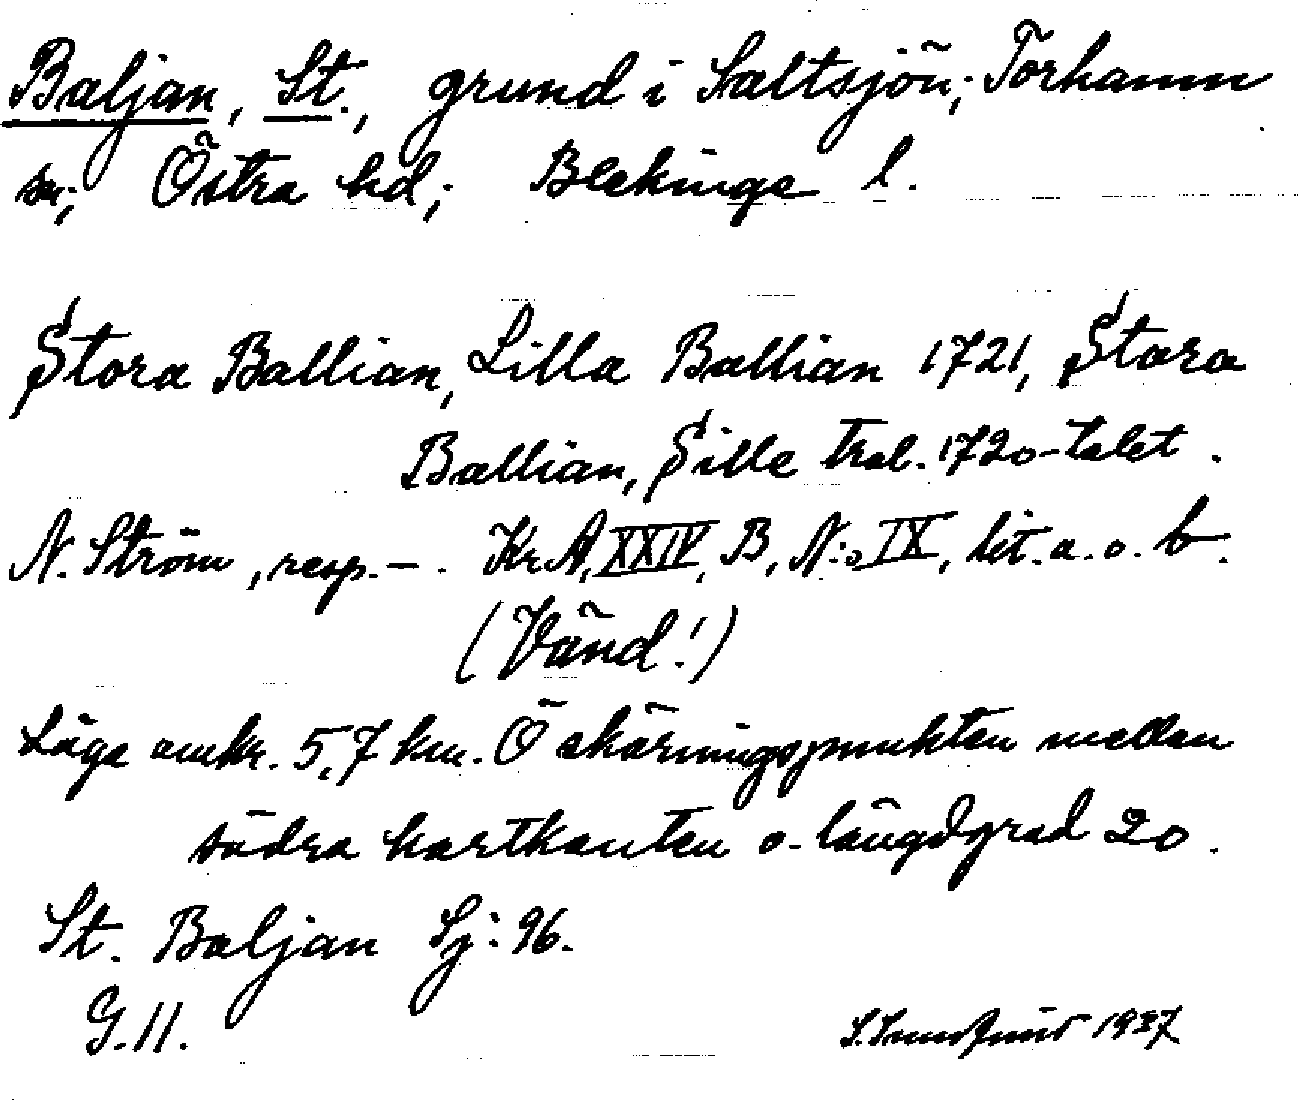 Baljan, St., grund i Saltsjön; Torhamn
sn; Östra hd; Blekinge l.
Stora Ballian, Lilla Ballian 1721, Stora
Ballian, Lille tral. 1720-talet.
N. Ström, resp. -. Kr A, XXIV, B, N:o IX, lit. a. o. b.
(Vänd!)
Läge omkr. 5,7 km. Ö skärningspunkten mellan
södra kartkanten o. längdgrad 20.
St. Baljan Sj: 96.
G. 11.
1937